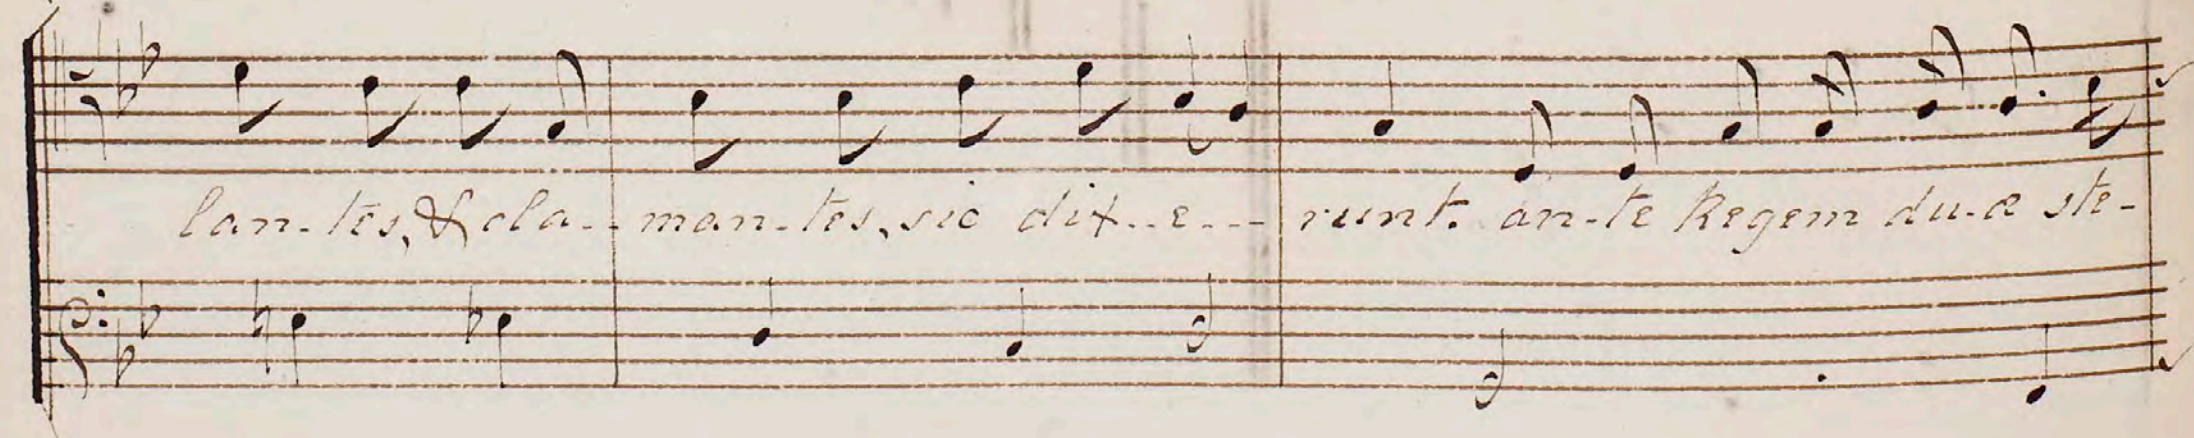 lan-tes, & cla-- man-tes, sic dix--e--- runt. an-te Regem du-æ ste-